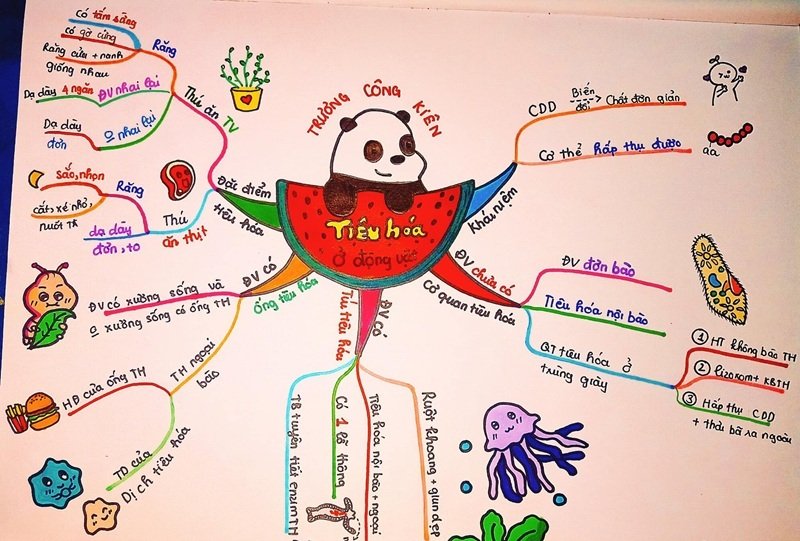 TRƯƠNG CÔNG KIÊN
Tiêu hóa
Ở động vật
Khái niệm
CDD Biến đổi > Chất đơn giản
Cơ thể hấp thụ được
ĐV chưa có
Cơ quan tiêu hóa
ĐV đơn bào
Tiêu hóa nội bào
QT tiêu hóa ở
trùng giày
① HT không bào TH
② lizoxom + KBTH
③ Hấp thụ CDD
+ thải bã ra ngoài
ĐV có
Túi tiêu hóa
Ruột khoang + giun dẹp
Tiêu hóa nội bào + ngoại
Có 1 lỗ thông
TB tuyến tiết enzim TH
ĐV có
ống tiêu hóa
ĐV có xương sống và
0 xương sống có ống TH
TH ngoại
bào
HĐ của ống TH
TD của
Dịch tiêu hóa
Đặc điểm
tiêu hóa
Thú ăn TV
Răng
Có tấm sừng
có gờ cứng
Răng cửa + nanh
giống nhau
ĐV nhai lại
Dạ dày 4 ngăn
0 nhai lại
Dạ dày
đơn
Thú
ăn thịt
Răng
sắc, nhọn
cắt, xé nhỏ,
nuốt TĂ
dạ dày
đơn, to